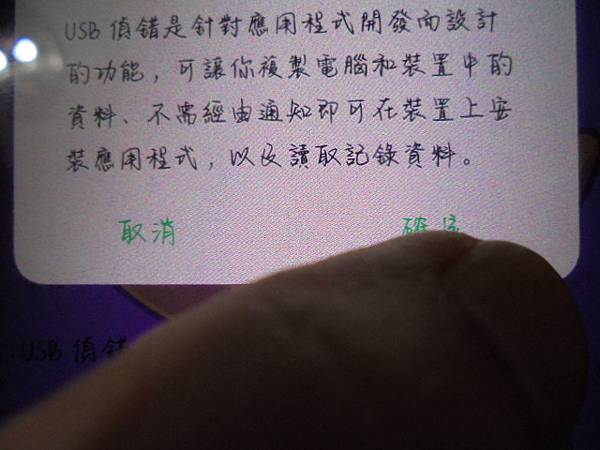 USB 偵錯是針對應用程式開發而設計
的功能，可讓你複製電腦和裝置中的
資料、不需經由通知即可在裝置上安
裝應用程式，以及讀取記錄資料。
取消
USB 偵錯